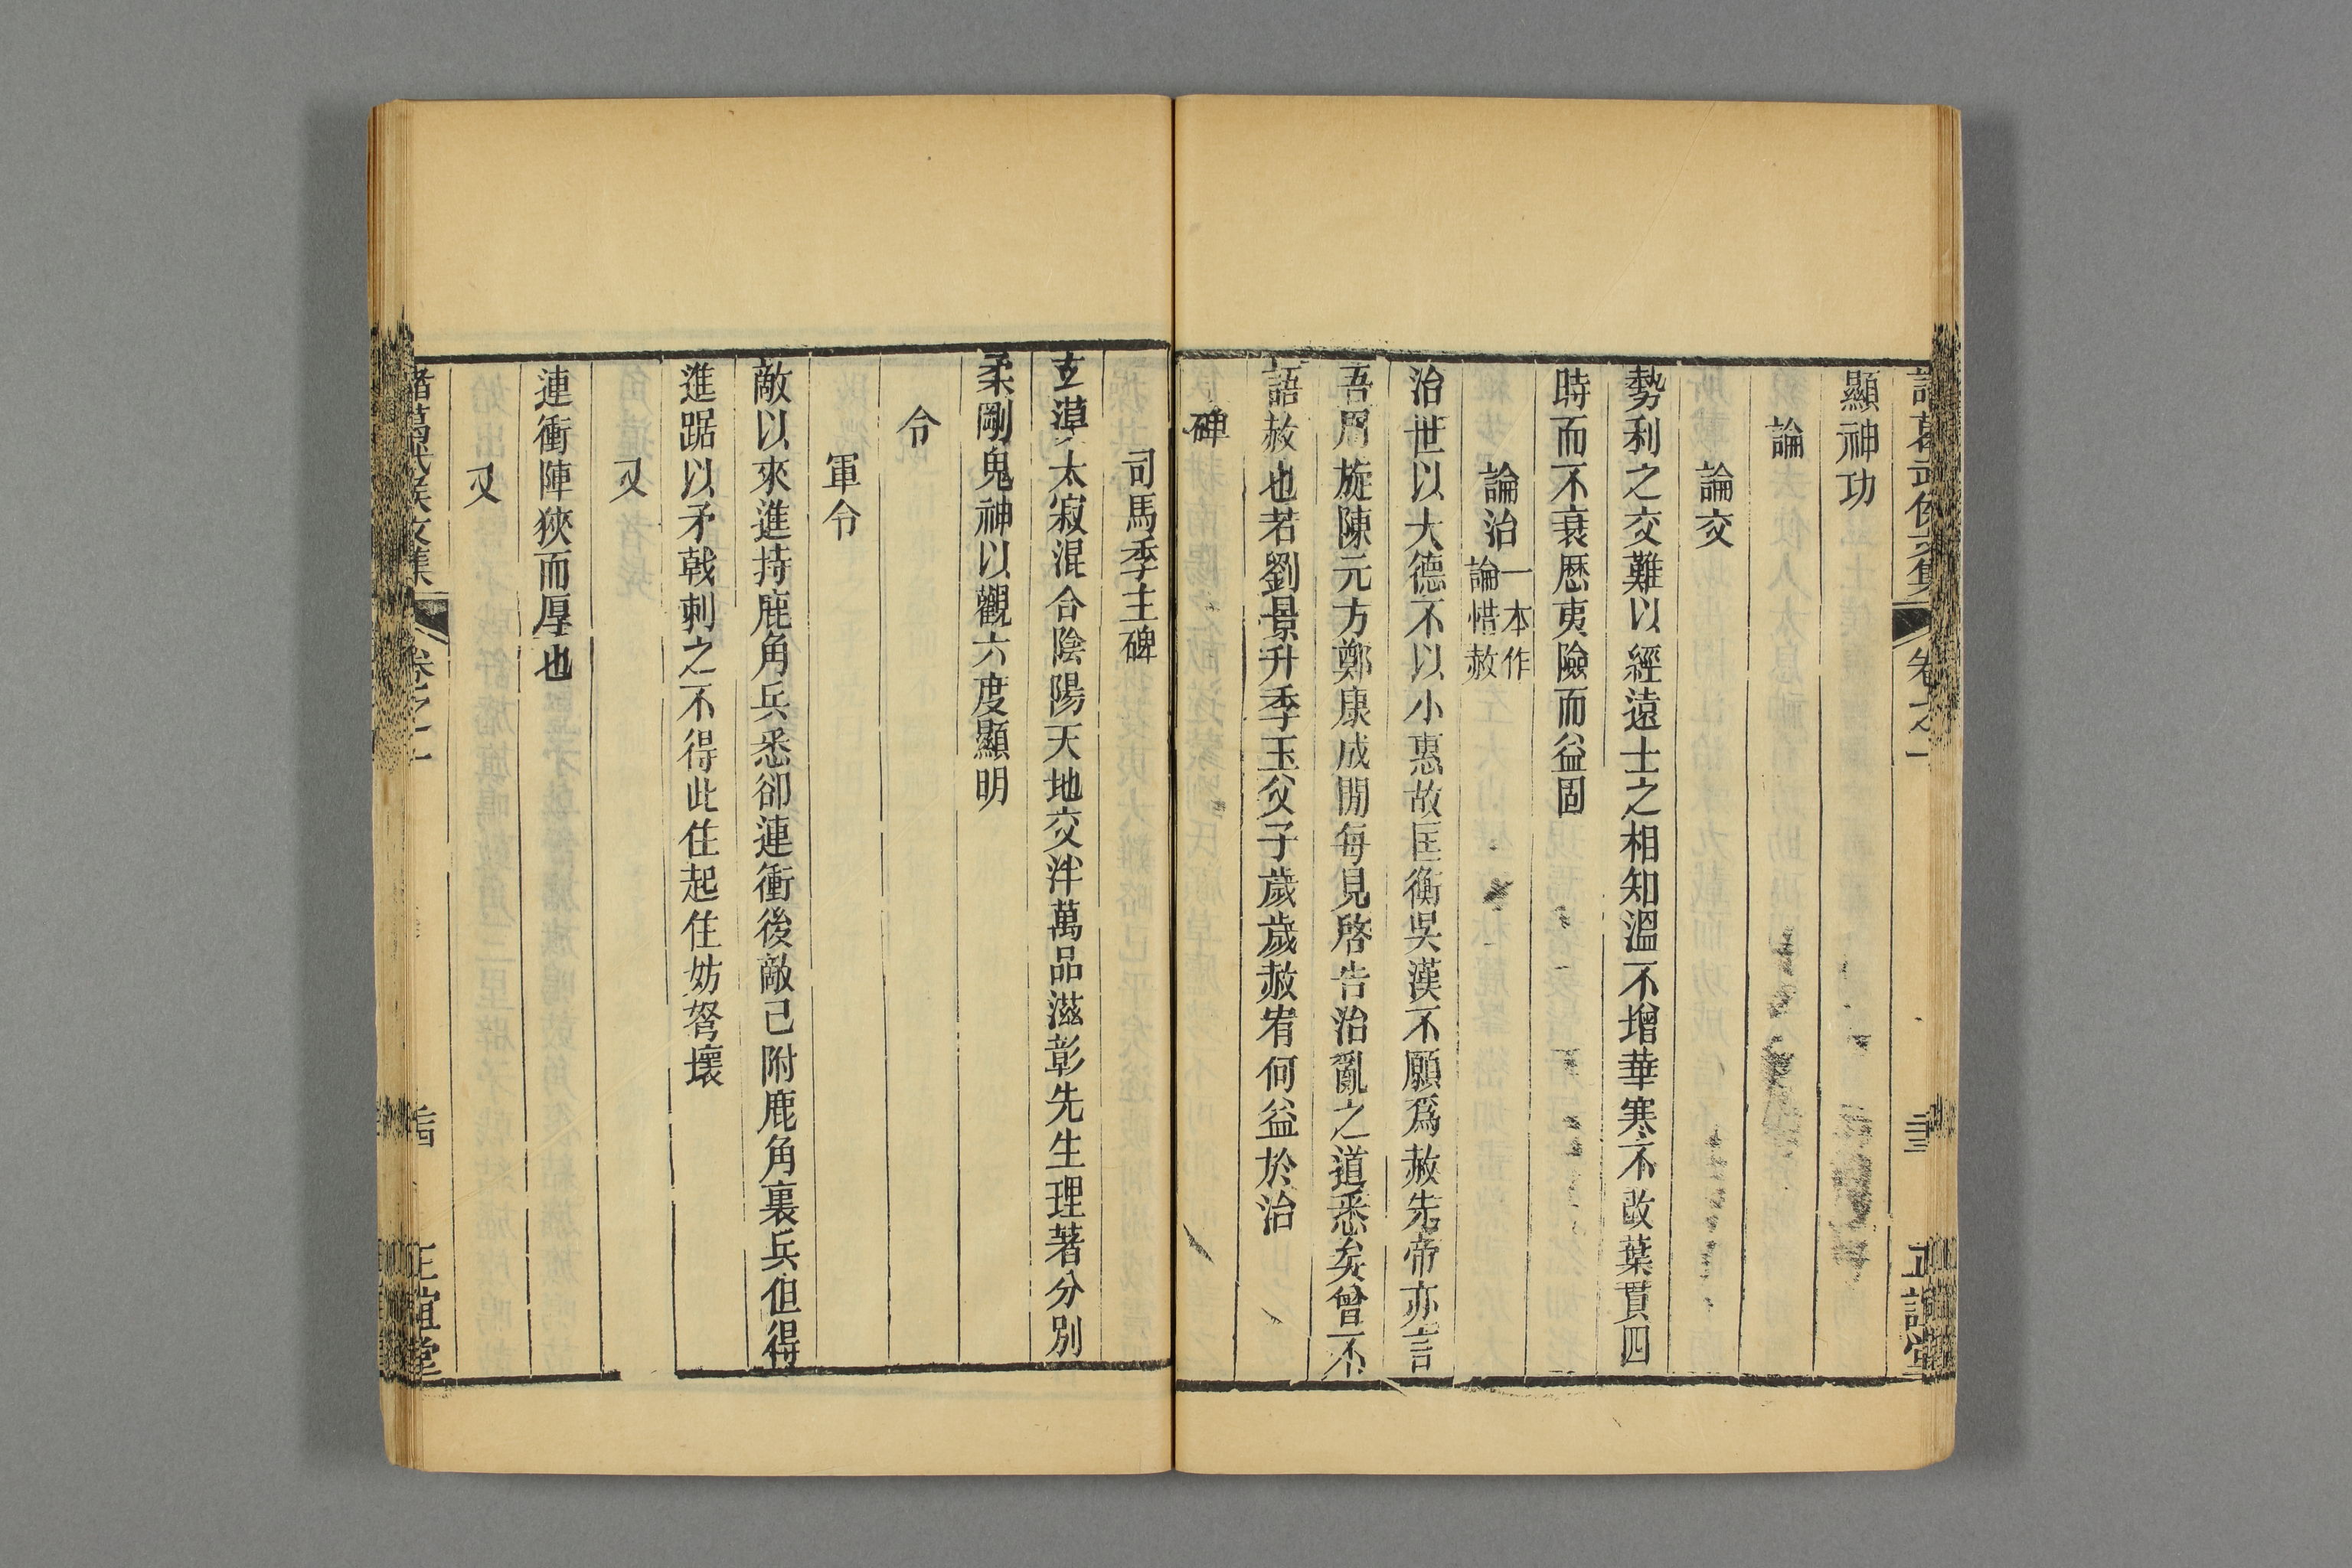 諸葛武侯文集 卷之一 正誼堂
顯神功
論
論交
勢利之交難以經遠士之相知溫不增華寒不改葉貫四
時而不衰歷夷險而益固
論治一本作論惜赦
治世以大德不以小惠故匡衡吳漢不願爲赦先帝亦言
吾周旋陳元方鄭康成閒每見啓告治亂之道悉矣曾不
語赦也若劉景升季玉父子歲歲赦宥何益於治
碑
司馬季主碑
玄漠太寂混合陰陽天地交泮萬品滋彰先生理著分別
柔剛鬼神以觀六度顯明
令
軍令
敵以來進持鹿角兵悉卻連衝後敵已附鹿角裏兵但得
進踞以矛戟刺之不得此住起住妨弩壞
又
連衝陣狹而厚也
又
諸葛武侯文集 卷之一 正誼堂